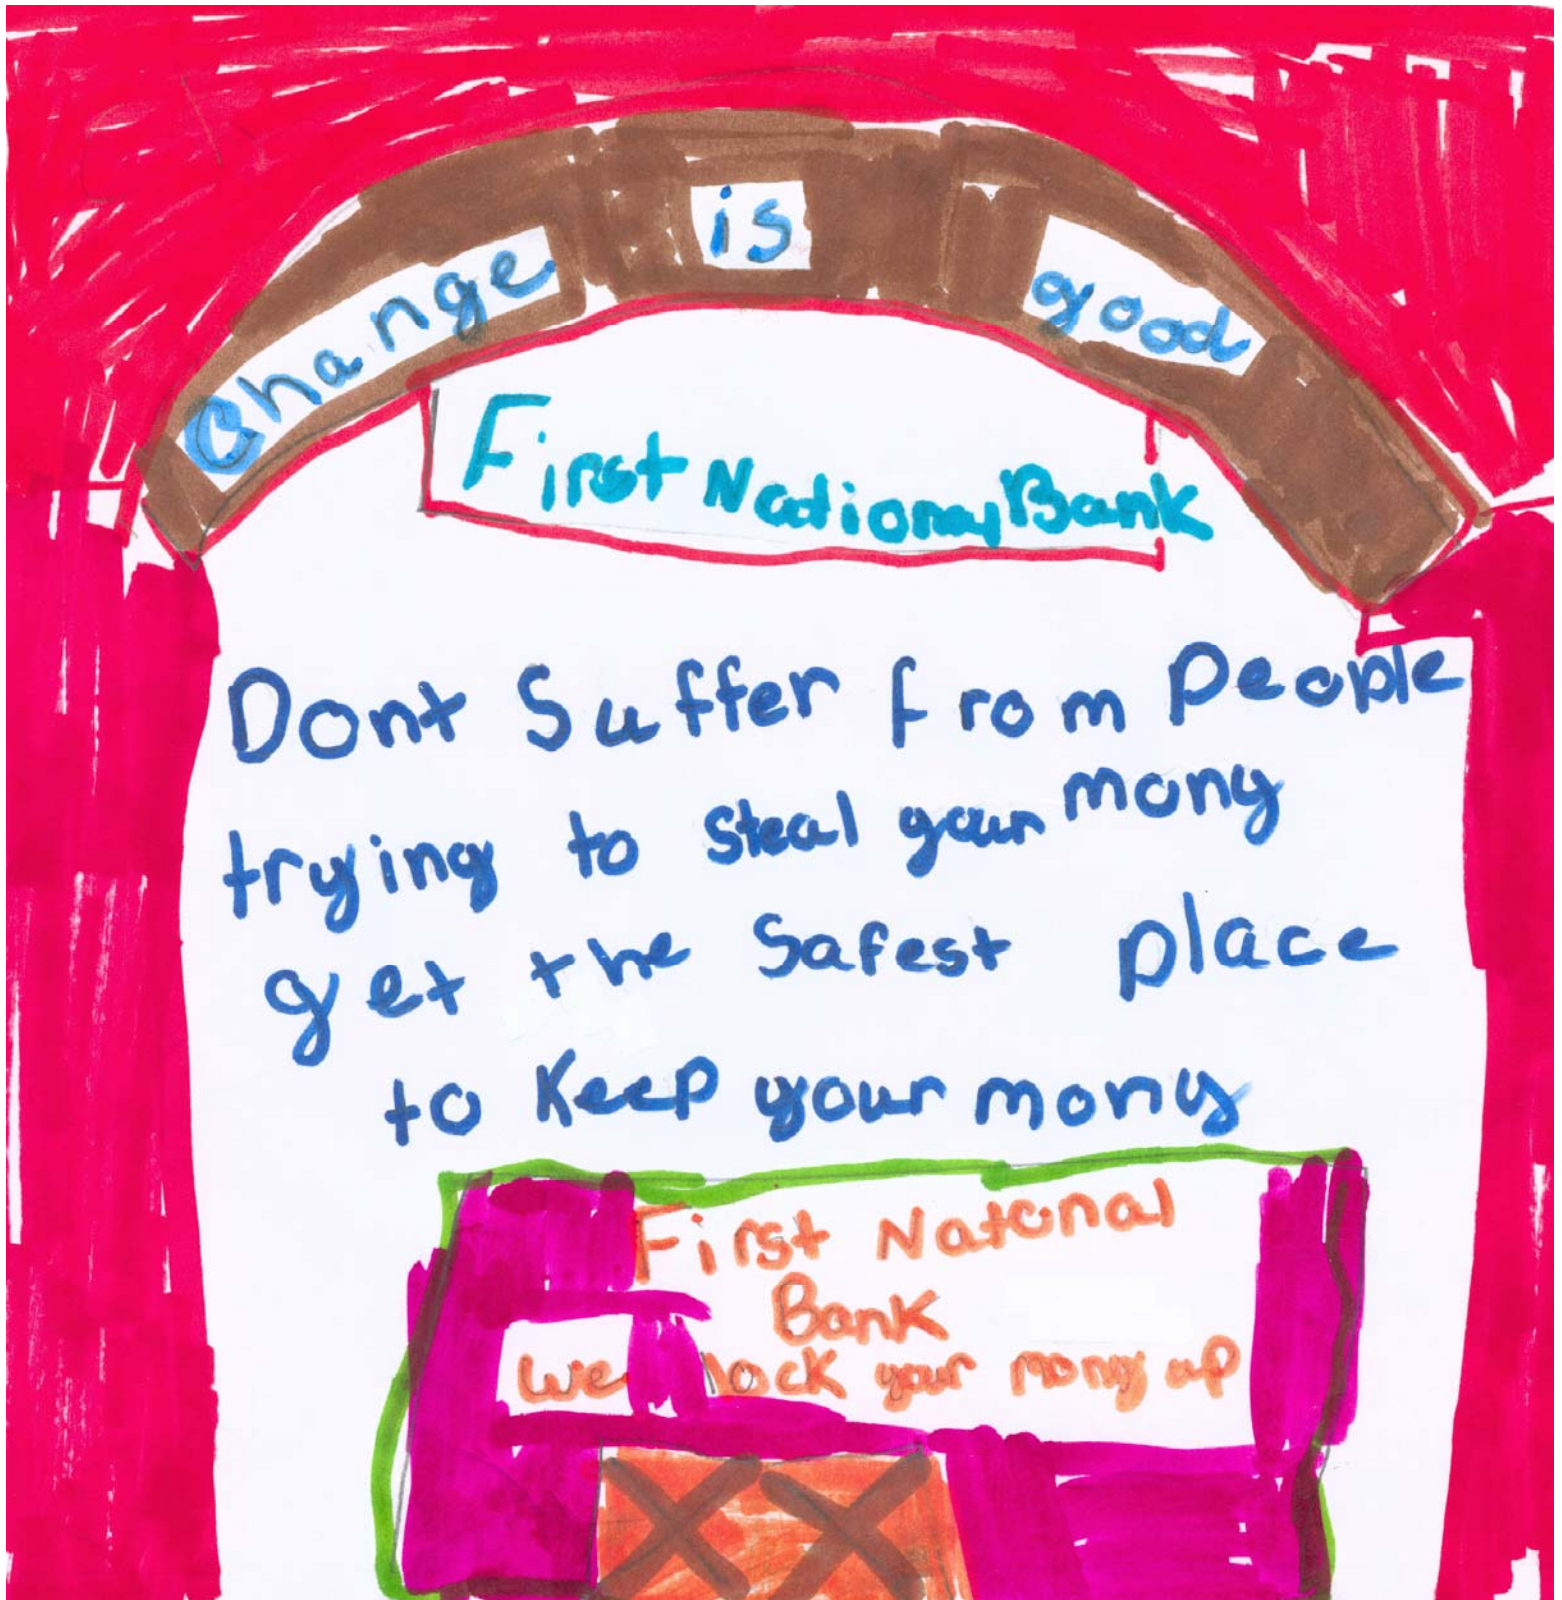 Change is good
First National Bank
Dont Suffer from People
trying to Steal your mony
get the Safest place
to Keep your mony
First Natonal
Bank
We lock your mony up